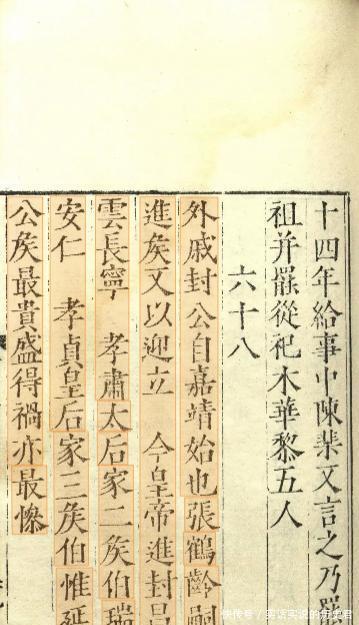 十四年給事中陳棐又言之乃罷
祖并罷從祀木華黎五人
六十八
外戚封公自嘉靖始也張鶴齡嗣
進矦又以迎立　今皇帝進封昌
雲長寧　孝肅太后家二矦伯瑞
安仁　孝貞皇后家三矦伯惟延
公矦最貴盛得禍亦最慘
快传号 / 笑话实说的历史君